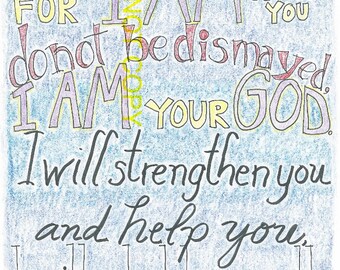 FOR I AM YOU
do not be dismayed,
I AM YOUR GOD.
I will strengthen you
and help you,
I will